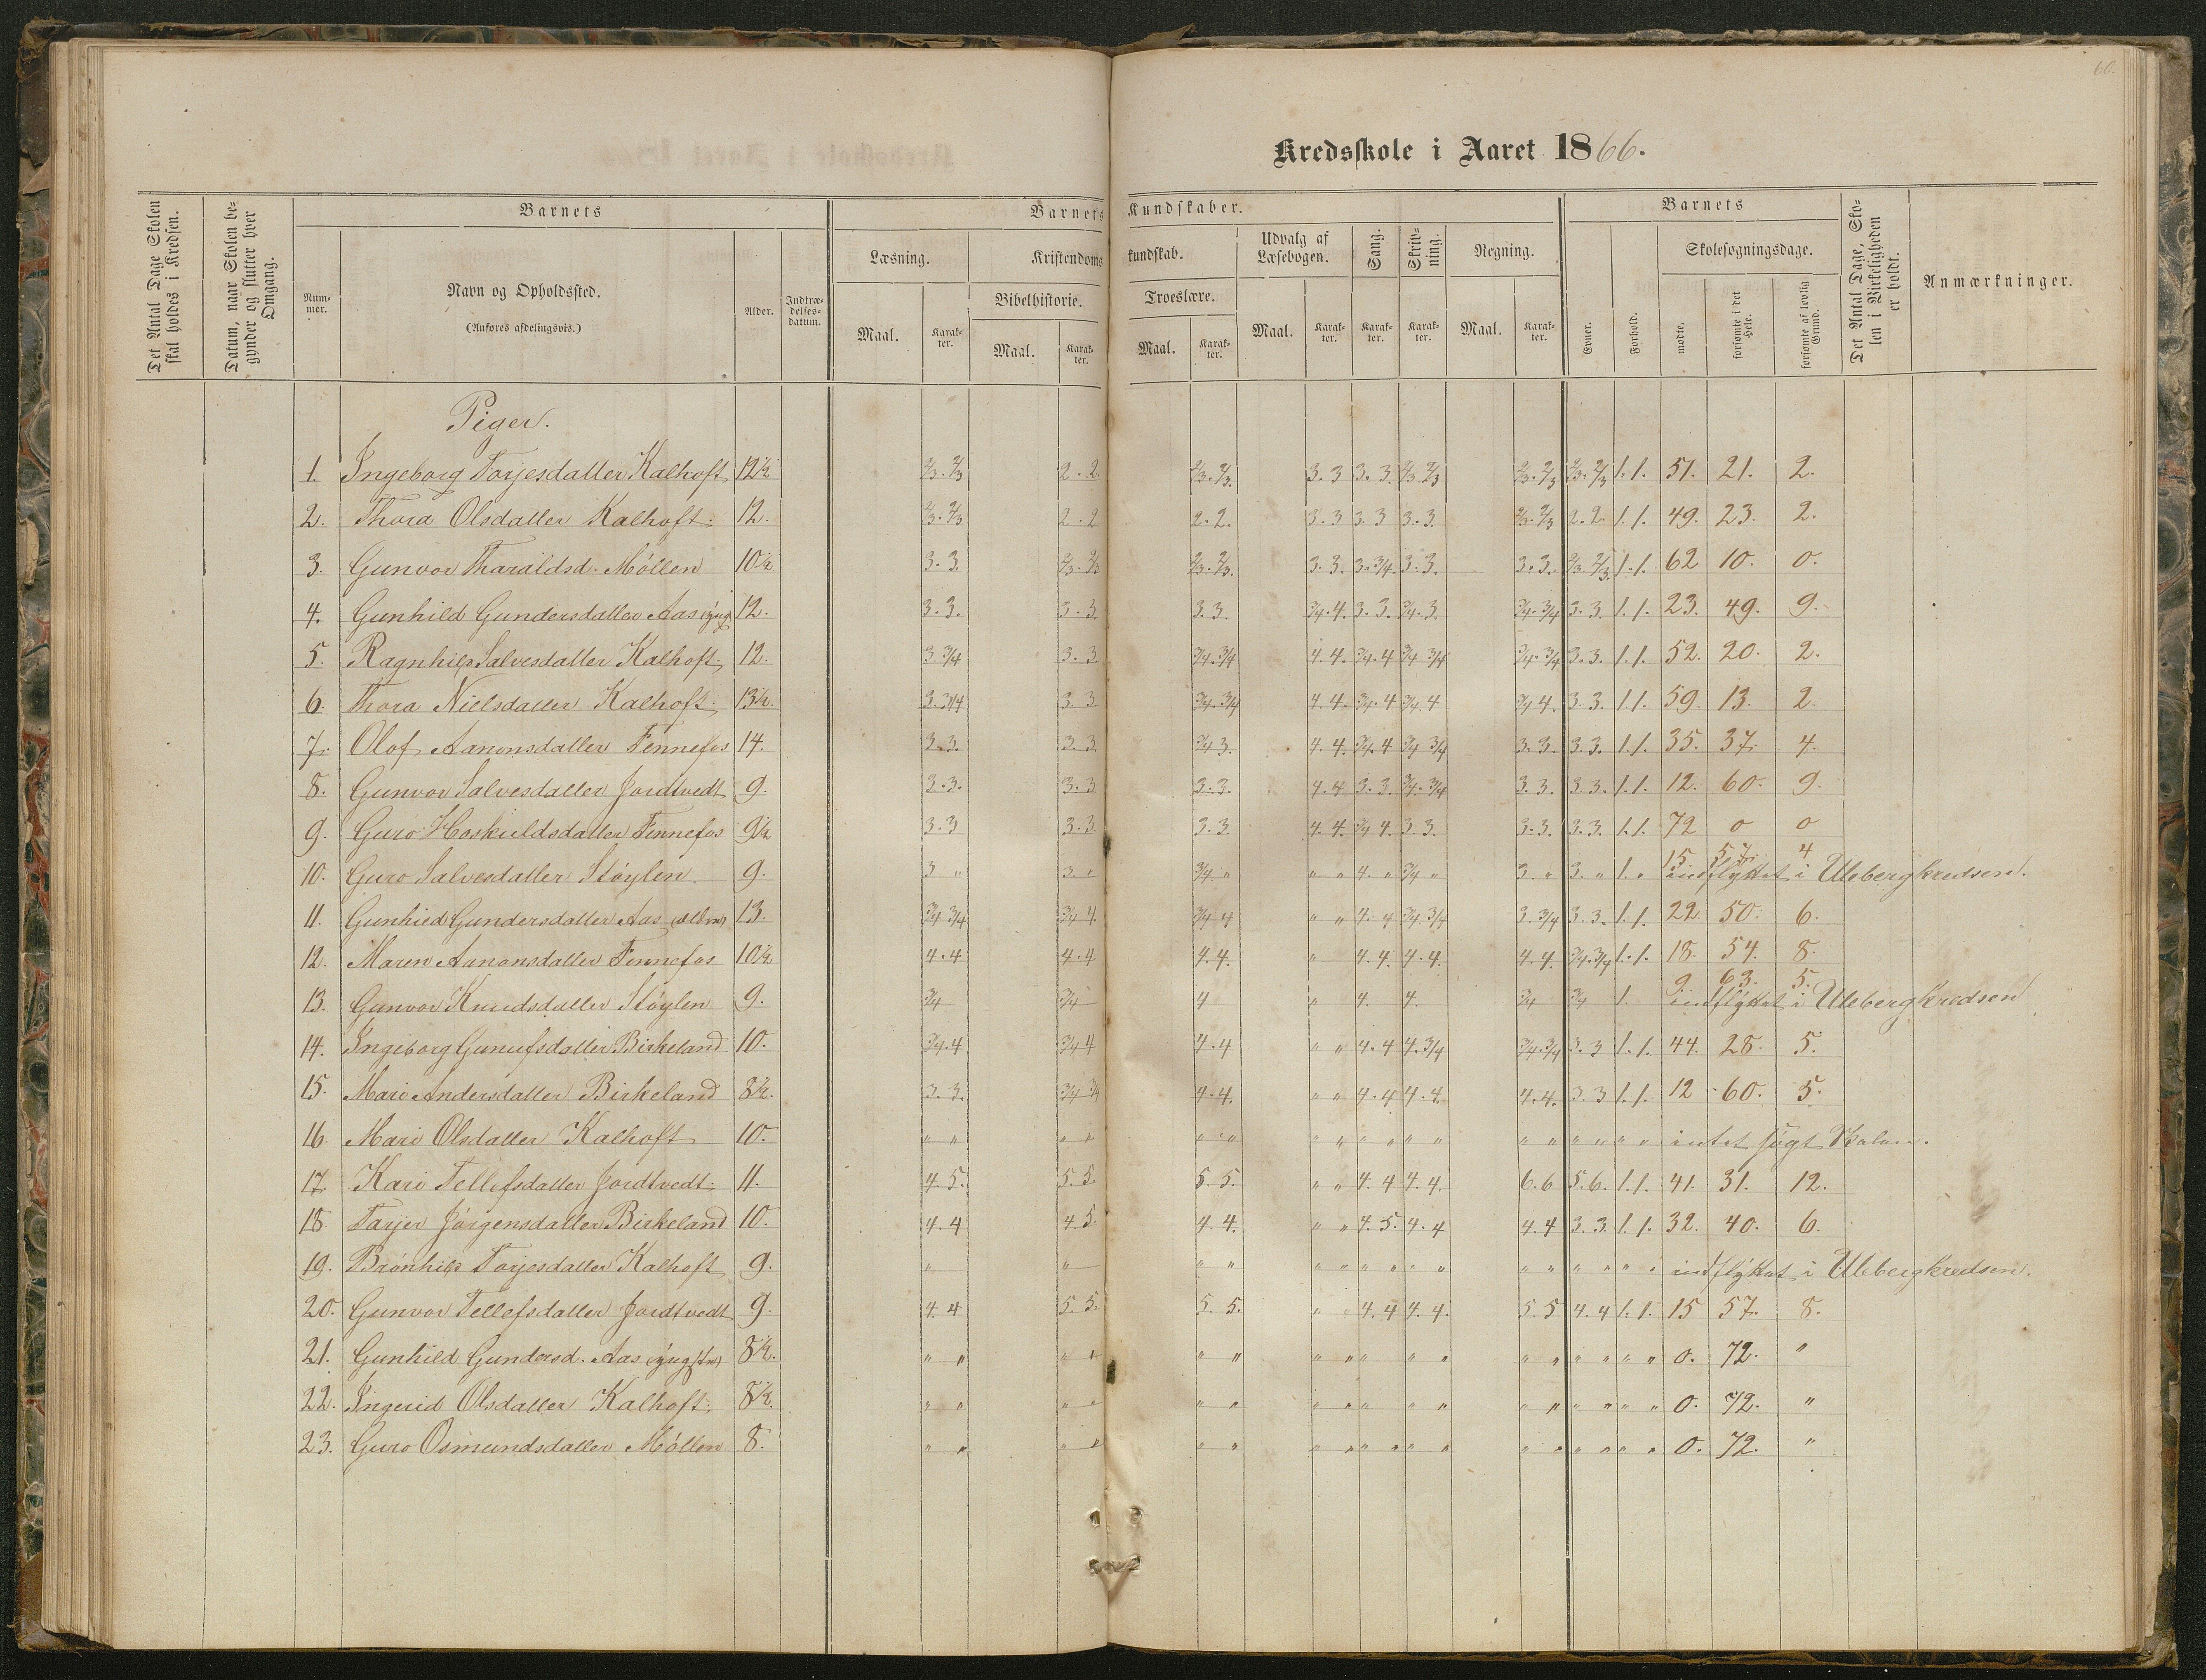 60.
Kredsskole i Aaret 1866.
Det Antal Dage Skolen skal holdes i Kredsen.
Datum, naar Skolen begynder og slutter hver Omgang.
Barnets
Nummer.
Navn og Opholdssted.
(Anføres afdelingsvis.)
Alder.
Indtrædelsesdatum.
Barnets Kundskaber.
Læsning.
Maal.
Karakter.
Kristendomskundskab.
Bibelhistorie.
Maal.
Karakter.
Troeslære.
Maal.
Karakter.
Udvalg af Læsebogen.
Maal.
Karakter.
Sang.
Karakter.
Skrivning.
Karakter.
Regning.
Maal.
Karakter.
Barnets
Evner.
Forhold.
Skolesøgningsdage.
mødte.
forsømte i det Hele.
forsømte af lovlig Grund.
Det Antal Dage, Skolen i Virkeligheden er holdt.
Anmærkninger.
Piger.
1. Ingeborg Torjesdatter Kalhoft 12½ 2/3. 2/3 2. 2. 2/3. 2/3. 3. 3 3. 3. 2/3 2/3 2/3. 2/3 2/3. 2/3 1. 1. 51. 21. 2.
2. Thora Olsdatter Kalhoft. 12. 2/3. 2/3 2. 2 2. 2. 3. 3 3. 3 3. 3. 2/3. 2/3 2. 2. 1. 1. 49. 23. 2.
3. Gunvor Tharaldsd. Möllen 10½ 3. 3. 2/3. 2/3 2/3. 2/3. 3. 3. 3. 3/4. 3. 3. 3. 3. 2/3 2/3. 1. 1. 62 10. 0.
4. Gunhild Gundersdatter Aas (yng 12. 3. 3. 3. 3 3. 3. 3/4. 4. 3. 3. 3/4. 3. 3/4. 3/4 3. 3. 1. 1. 23. 49. 9.
5. Ragnhild Salvesdatter Kalhoft. 12. 3 3/4 3. 3 3/4. 3/4 4. 4. 3/4. 4 3/4 3/4 3/4. 3/4 3. 3. 1. 1. 52. 20. 2.
6. Thora Nielsdatter Kalhoft. 13½. 3. 3/4 3. 3 3/4. 3/4 4. 4. 3/4. 4 3/4. 4 3/4 4. 3. 3. 1. 1. 59. 13. 2.
7. Olof Aanonsdatter Fennefos 14. 3. 3. 3. 3 3/4 3. 4. 4. 3/4. 4 3/4 3/4 3. 3. 3. 3. 1. 1. 35. 37. 4.
8. Gunvor Salvesdatter Jordtvedt 9. 3. 3. 3. 3 3. 3. 4. 4 3. 3. 3/4. 3/4 3. 3. 3. 3. 1. 1. 12. 60. 9.
9. Guro Hoskuldsdatter Fennefos 9½ 3. 3 3. 3. 3. 3. 4. 4. 3/4 4. 3. 3. 3. 3. 3. 3. 1. 1. 72 0 0
10. Guro Salvesdatter Støylen 9. 3 " 3. " 3/4 " " " 4. " 3/4 " 3. " 3. " 1. " 15. 57. 4 indflyttet i Ulebergkredsen.
11. Gunhild Gundersdatter Aas (ældre) 13. 3/4 3/4 3/4 4. 3/4 4 " " 4. 4 3/4. 3/4 3. 3/4 3. 3. 1. 1. 22. 50. 6.
12. Maren Aanonsdatter Fennefos 10½ 4. 4 4. 4 4. 4. " 4. 4. 4. 4. 4. 4. 3/4. 3/4 1. 1. 18. 54. 8.
13. Gunvor Knudsdatter Støylen 9. 3/4 3/4 4 " 4. 4. 3/4 3/4 1. 9. 63. 5. indflyttet i Ulebergkredsen
14. Ingeborg Gunufsdatter Birkeland 10. 3/4. 4 3/4 4 4. 4 " " 4. 4 4. 3/4 3/4. 3/4 3. 3 1. 1. 44. 28. 5.
15. Mari Andersdatter Birkeland 8½. 3. 3. 3/4 3/4 4. 4. " " 4. 4 4. 4. 4. 4. 3. 3 1. 1. 12 60. 5.
16. Mari Olsdatter Kalhoft 10. " " " " " " " " " " " " " " " " " " intet søgt Skolen.
17. Kari Tellefsdatter Jordtvedt. 11. 4. 5. 5. 5. 5. 5. " " 4. 4 4. 4. 6. 6 5. 6. 1. 1. 41. 31. 12.
18 Tarjer Jørgensdatter Birkeland 10. 4. 4 4. 5. 4. 4. " " 4. 5. 4. 4 4. 4 3. 3. 1. 1. 32. 40. 6.
19. Brønhild Torjesdatter Kalhoft 9. " " " " " " " " " " " " " " " " indflyttet i Ulebergkredsen.
20. Gunvor Tellefsdatter Jordtvedt 9. 4. 4 5. 5. 5. 5. " " 4. 4 4. 4. 5. 5 4. 4 1. 1. 15 57. 8.
21. Gunhild Gundersd. Aas (yngstre) 8½. " " " " " " " " " " " " " " " " " " 0. 72. "
22. Ingerid Olsdatter Kalhoft. 8½. " " " " " " " " " " " " " " " " " " 0. 72. "
23. Guro Osmundsdatter Möllen 8. " " " " " " " " " " " " " " " " " " 0. 72. "